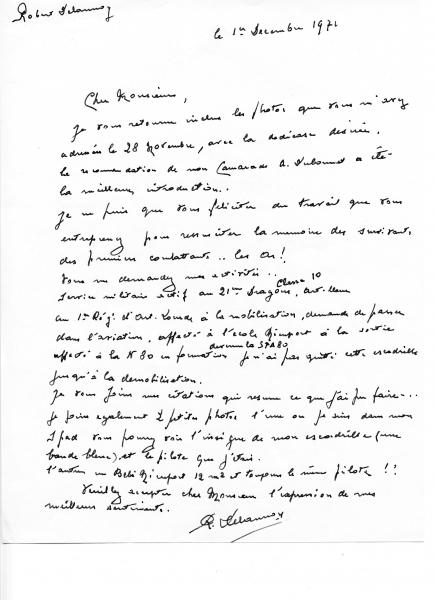 Robert Delannoy
le 1er Decembre 1971
Cher Monsieur,
Je vous retourne inclus les photos que vous m'avez
adressés le 28 Novembre, avec la dédicace désirée.
la recomendation de mon Camarade A. Dubonnet a été
la meilleure introduction..
Je ne puis que vous féliciter du travail que vous
entreprenez pour ressusciter la memoire des survivants
des premiers combattants.. les As!
Vous me demandez mes activités..
Service militaire actif au 21ème Dragons, Classe 10
au 1er Rég. d'Art. Lourde à la mobilisation, demande de passer
dans l'aviation, affecté à l'école Nieuport à la sortie
affecté à la N 80 en formation devenue la SPA 80 je n'ai pas quitté cette escadrille
jusqu'à la demobilisation.
Je vous joins mes citations qui resume ce que j'ai pu faire...
Je joins egalement 2 petites photos l'une ou je suis dans mon
Spad vous pourrez voir l'insigne de mon escadrille (une
bande bleue) et le pilote que j'étais.
l'autre un Bébé Nieuport 12 m2 et toujours le même pilote !!
Veuillez accepter cher Monsieur l'expression de mes
meilleurs sentiments.
R. Delannoy